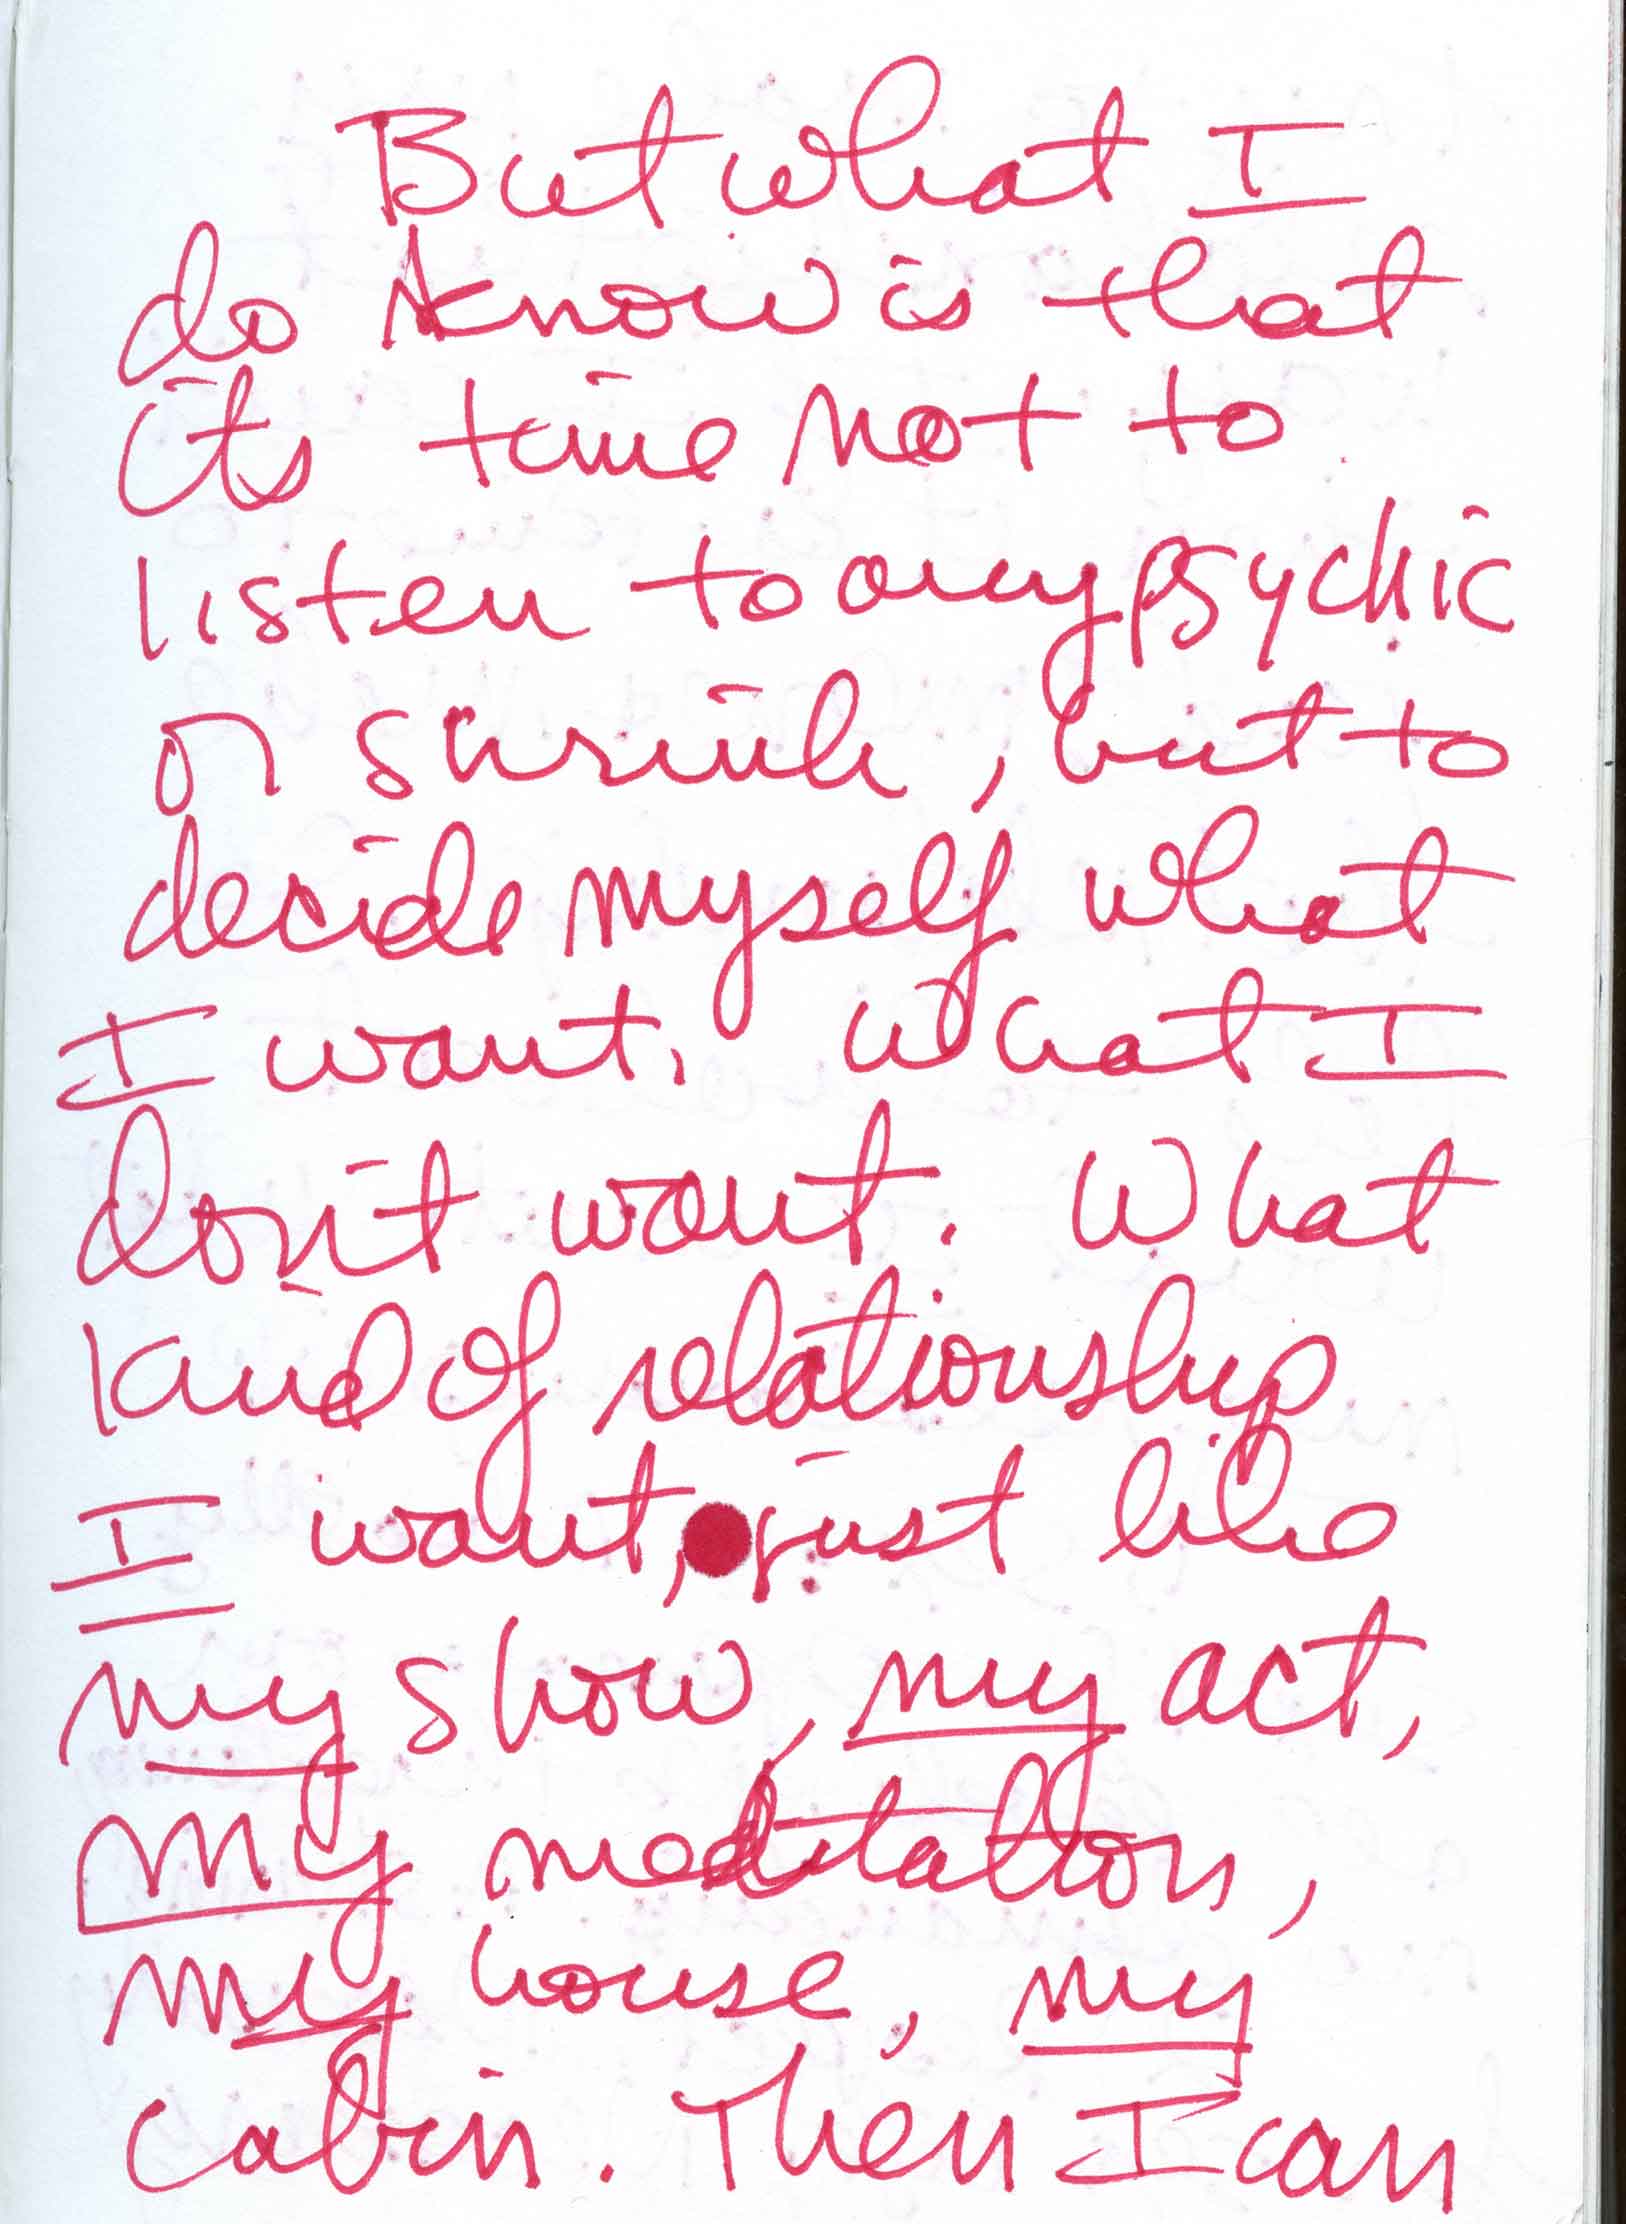 But what I
do know is that
its time not to
listen to any psychic
or shrink, but to
decide myself what
I want. What I
don't want. What
kind of relationship
I want, just like
my show, my act,
my meditation,
my house, my
cabin. Then I can